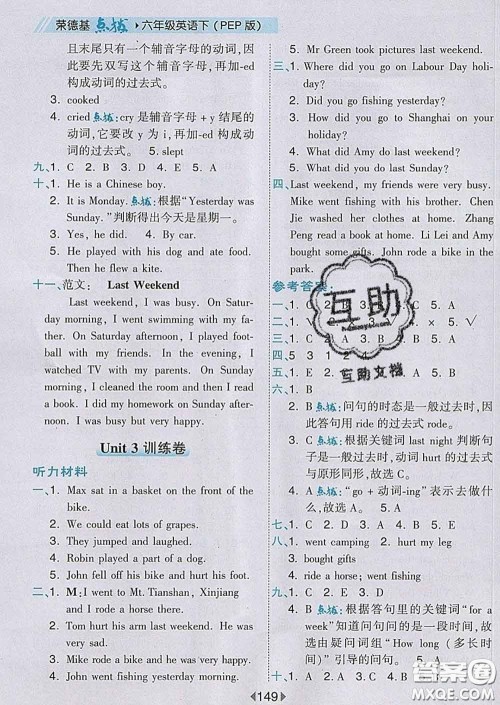 荣德基 点拨 六年级英语下（PEP 版）
且末尾只有一个辅音字母的动词，因
此要先双写这个辅音字母，再加-ed
构成动词的过去式。
3. cooked
4. cried 点拨：cry 是辅音字母 + y 结尾的
动词，它要改 y 为 i，再加-ed 构成动
词的过去式。 5. slept
九、1. C 2. B 3. D 4. E 5. A
十、1. He is a Chinese boy.
2. It is Monday. 点拨：根据“Yesterday was
Sunday.”判断得出今天是星期一。
3. Yes, he did.
4. He played with his dog and ate food.
Then he flew a kite.
十一、范文： Last Weekend
Last weekend, I was busy. On Satur-
day morning, I went swimming with my
father. On Saturday afternoon, I played foot-
ball with my friends. In the evening, I
watched TV with my parents. On Sunday
morning, I cleaned the room and then I read
a book. I did my homework on Sunday after-
noon. I was busy but happy.
Unit 3 训练卷
听力材料
一、1. Max sat in a basket on the front of the
bike.
2. We could eat lots of grapes.
3. They jumped and laughed.
4. Robin played a part of a dog.
5. John fell off his bike and hurt his foot.
二、1. M: I went to Mt. Tianshan, Xinjiang
and I rode a horse. It was fun!
2. Tom hurt his arm last weekend. He was
very sad.
3. Mike rode a bike and he was very happy.
4. John went fishing yesterday morning.
5. Amy took pictures last weekend.
三、1. Where did you go on Labour Day holi-
day?
2. Did you go fishing yesterday?
3. How did you go to Shanghai on your
holiday?
4. What did Amy do last weekend?
5. What did you do last Sunday?
四、Last weekend, my friends were very busy.
Mike went fishing on Saturday morning. Chen
Jie washed her clothes at home. Zhang
Peng read a book at home. Li Lei and Amy
bought some gifts. John rode a bike in the park.
参考答案：
一、1. C 5. A
二、1. √ × 5. √
三、1. A 5. A
四、5 3 1 2 4
五、1. A
六、1. B
2. A 点拨：问句的时态是一般过去时，因
此，答句应用 ride 的过去式 rode。
3. C 点拨：根据关键词 last night 判断句
子是一般过去时，动词 hurt 的过去式
与原形同形，故选 C。
4. A
5. A 点拨：“go + 动词-ing”表示去做什
么，故选 A。
七、1. C 2. D 3. A 4. B 5. E
八、1. went camping 2. hurt my leg
3. bought gifts
4. ride a horse; went fishing
九、1. C 2. D 3. E 4. A 5. B
十、1. B 点拨：根据答句里的关键词“for a
week”知道问句问的是一段时间，故
选由疑问词组“How long（多长时
间）”引导的问句。
149
互助
互助文档
答案圈
MXQE.COM